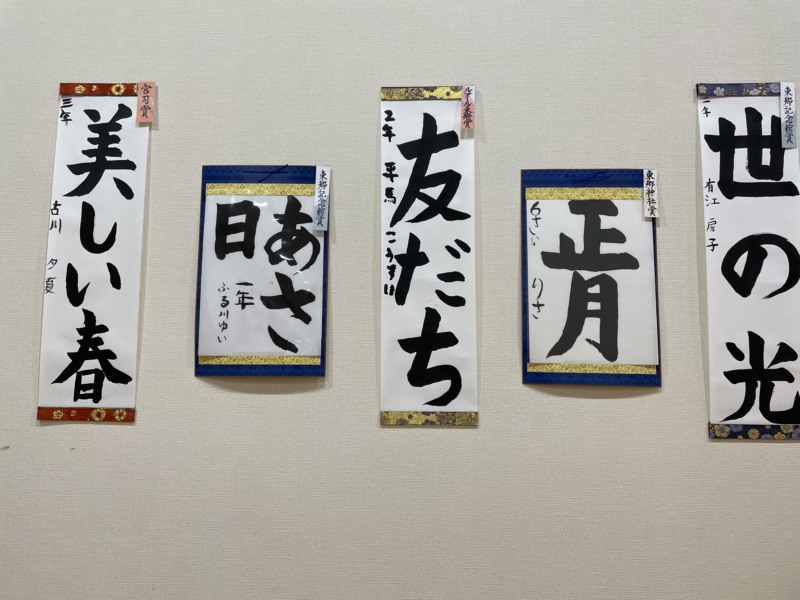 宮司賞
美しい春
三年
古川 夕夏
東郷記念館賞
あさ
日
一年
ふる川ゆい
友だち
2年 平馬 こうすけ
東郷神社賞
正月
6さい りさ
東郷記念館賞
世の光
有江 房子